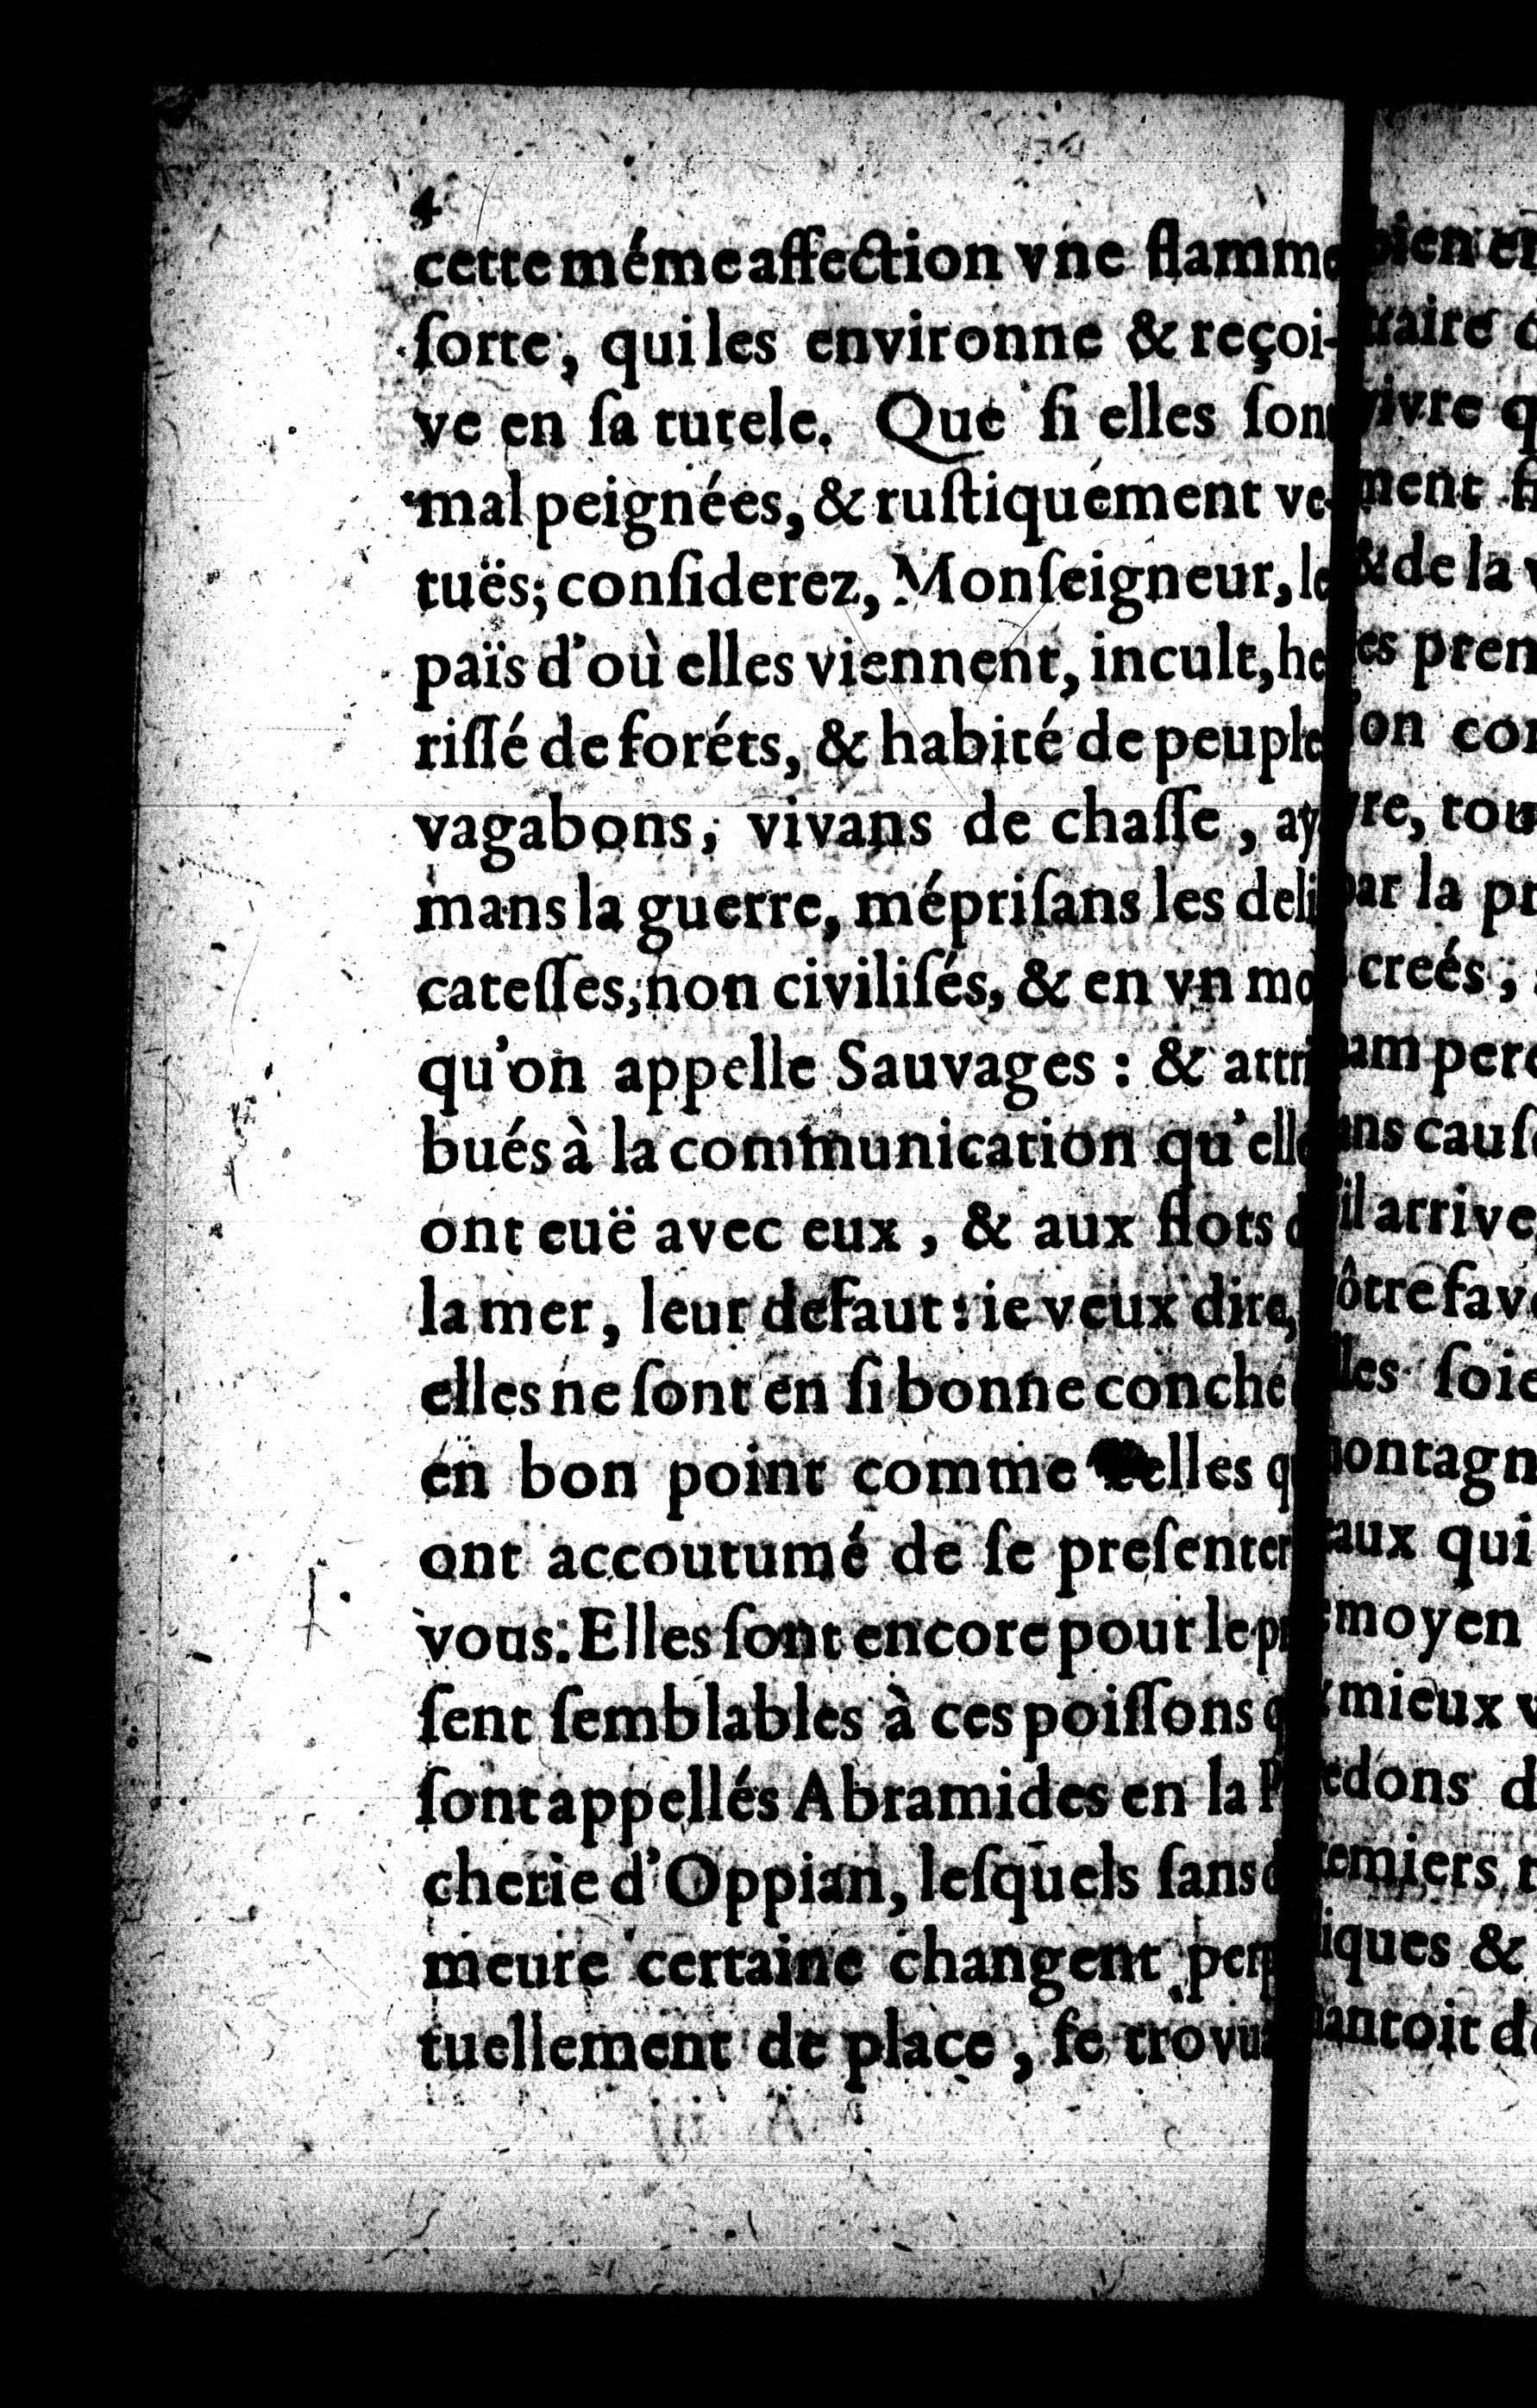 4
cette méme affection vne flamme
ſorte, qui les environne & reçoi-
ve en ſa tutele. Que ſi elles ſont
mal peignées, & ruſtiquement ve-
tuës; conſiderez, Monſeigneur, le
païs d'où elles viennent, incult, he
riſſé de foréts, & habité de peuple
vagabons, vivans de chaſſe, ay
mans la guerre, mépriſans les deli
cateſſes, non civiliſés, & en vn mo
qu'on appelle Sauvages : & attri
bués à la communication qu'elle
ont euë avec eux, & aux flots d
la mer, leur defaut: ie veux dire,
elles ne ſont en ſi bonne conche
en bon point comme celles q
ont accoutumé de ſe preſenter
vous. Elles ſont encore pour le pr
ſent ſemblables à ces poiſſons q
ſont appellés Abramides en la P
cherie d'Oppian, leſquels ſans d
meure certaine changent perp
tuellement de place, ſe trovua
bien e
traire
vivre q
ment
& de la
es prem
on co
vre, tou
par la pr
creés ;
am per
ans cauſ
il arrive
ôtre fav
lles ſoie
montagn
aux qui
moyen
mieux v
edons d
remiers
iques &
hantoit d